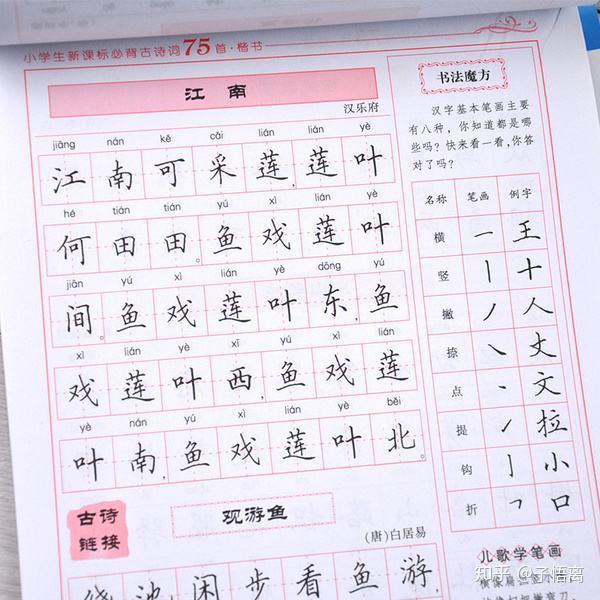 小学生新课标必背古诗词75首·楷书
江南
汉乐府
jiāng nán kě cǎi lián lián yè
江南可采莲,莲叶
hé tián tián yú xì lián yè
何田田。鱼戏莲叶
jiān yú xì lián yè dōng yú
间。鱼戏莲叶东,鱼
xì lián yè xī yú xì lián
戏莲叶西,鱼戏莲
yè nán yú xì lián yè běi
叶南,鱼戏莲叶北。
古诗
链接
观游鱼
(唐)白居易
绕池闲步看鱼游
书法魔方
汉字基本笔画主要
有八种,你知道都是哪
些吗?快来看一看,你答
对了吗?
名称 笔画 例字
横 一 王
竖 丨 十
撇 丿 人
捺 ㇏ 丈
点 丶 文
提 ㇀ 拉
钩 亅 小
折 ㇕ 口
儿歌学笔画
知乎 @子悟离